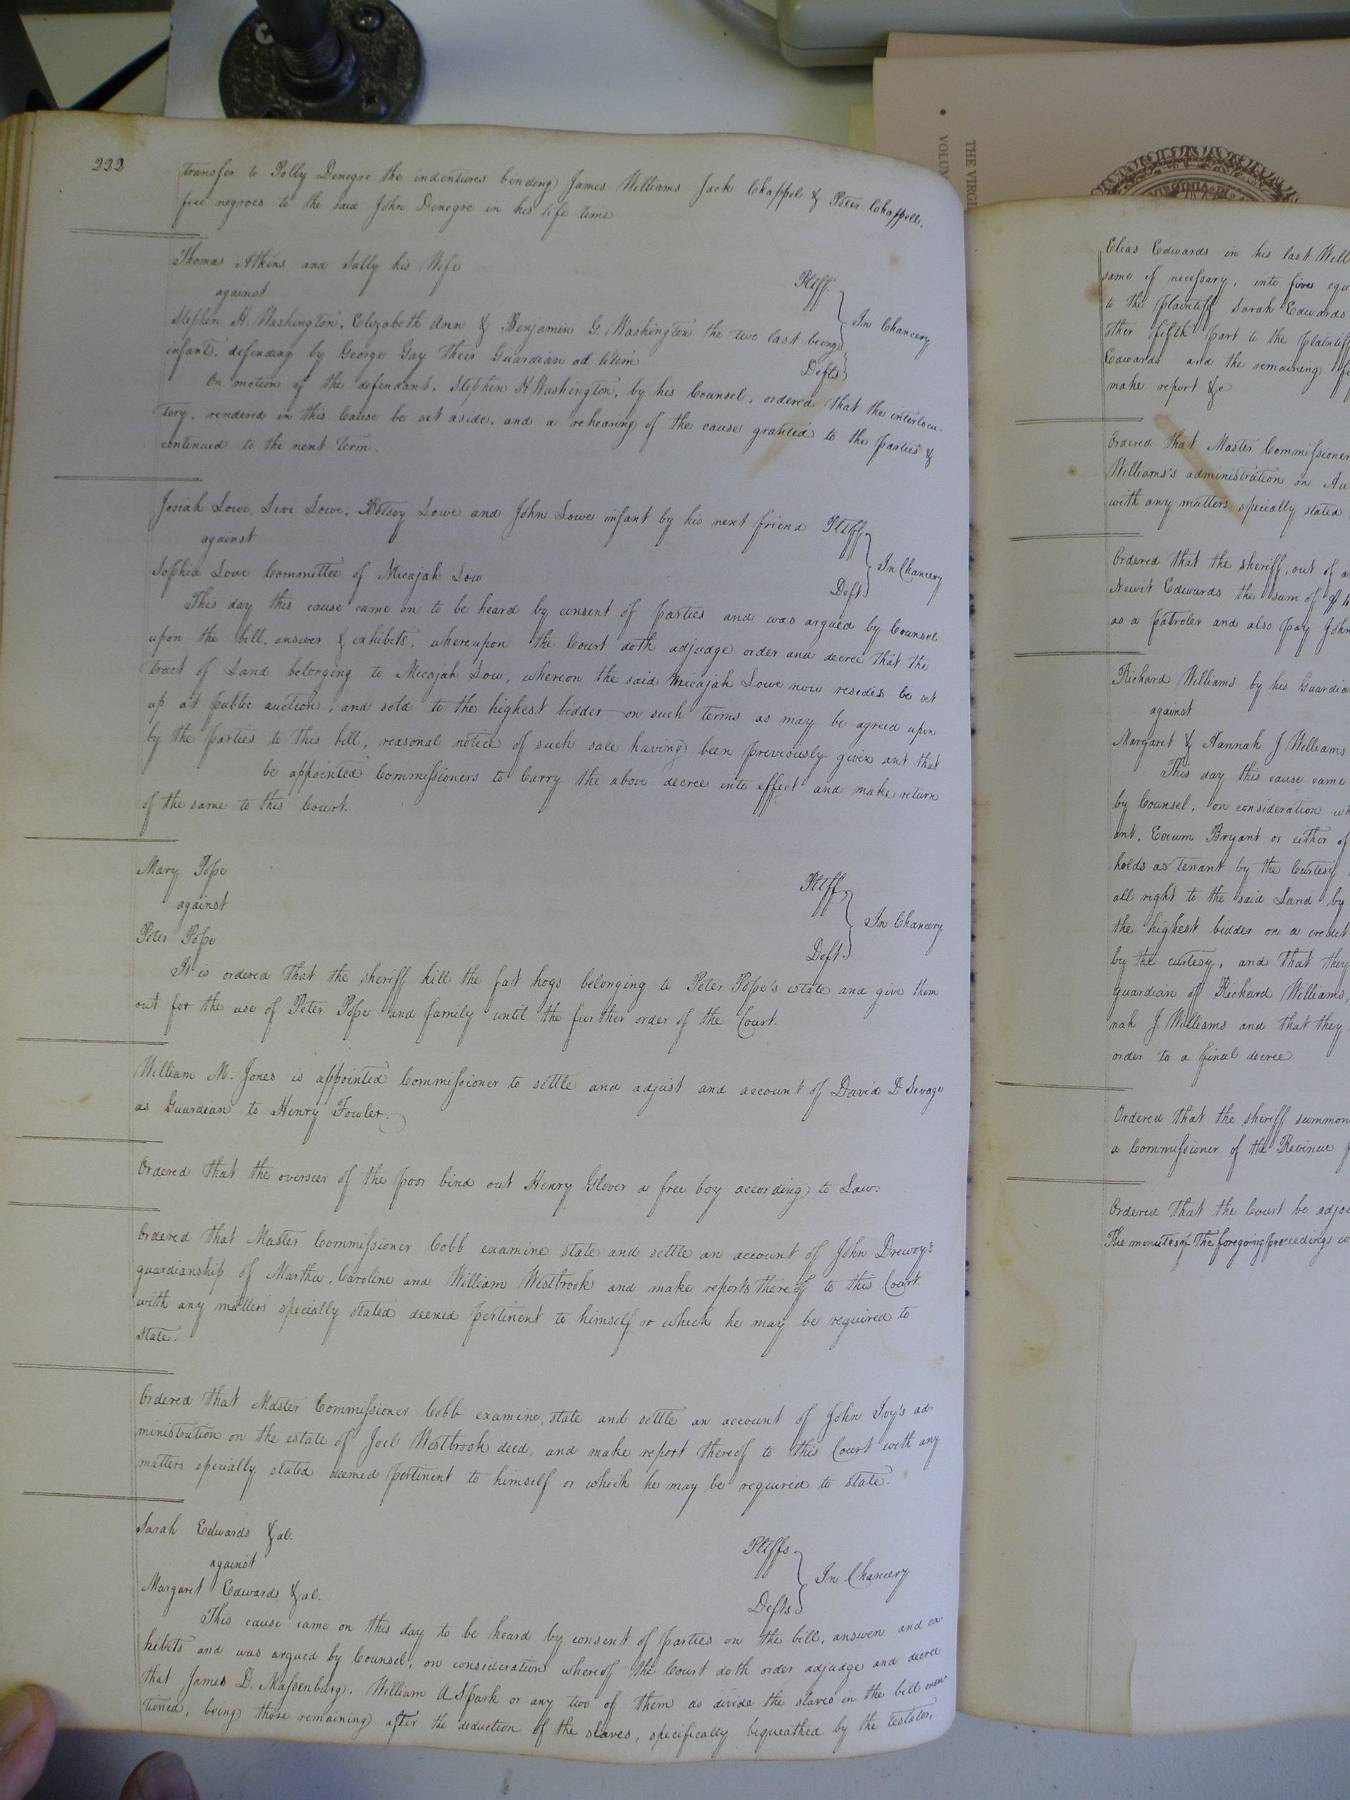 222
transfer to Polly Denegre the indentures binding James Williams Jack Chappell & Peter Chappell,
free negroes to the said John Denegre in his life time
Thomas Atkins and Sally his Wife Pltff.
against
Stephen H. Washington, Elizabeth Ann & Benjamin G. Washington the two last being In Chancery
infants, defending by George Gay their Guardian ad litem Defts
On motion of the defendant, Stephen H Washington, by his Counsel, ordered that the interlocu-
tory, rendered in this Cause be set aside, and a rehearing of the cause granted to the parties &
continued to the next term.
Josiah Lowe, Levi Lowe, Betsey Lowe and John Lowe infant by his next friend Pltff
against In Chancery
Sophia Love Committee of Micajah Low Deft
This day this cause came on to be heard by consent of parties and was argued by Counsel
upon the bill, answer & exhibits, whereupon the Court doth adjudge order and decree that the
tract of Land belonging to Micajah Low, whereon the said Micajah Lowe now resides be set
up at public auction, and sold to the highest bidder on such terms as may be agreed upon
by the parties to this bill, reasonal notice of such sale having been previously given ant that
be appointed Commissioners to Carry the above decree into effect and make return
of the same to this Court.
Mary Pope Pltff
against In Chancery
Peter Pope Deft
It is ordered that the sheriff kill the fat hogs belonging to Peter Pope's estate and give them
out for the use of Peter Pope and family until the further order of the Court.
William M. Jones is appointed Commissioner to settle and adjust and account of David D Sevage
as Guardian to Henry Fowler.
Ordered that the overseer of the poor bind out Henry Glover a free boy according to Law:
Ordered that Master Commissioner Cobb examine state and settle an account of John Drewry's
guardianship of Martha, Caroline and William Westbrook and make reports thereof to this Court
with any matters specially stated deemed pertinent to himself or which he may be required to
state.
Ordered that Master Commissioner Cobb examine, state and settle an account of John Ivy's ad-
ministration on the estate of Joel Westbrook decd, and make report thereof to this Court with any
matters specially stated deemed pertinent to himself or which he may be required to state.
Sarah Edwards & al. Pltffs
against In Chancery
Margaret Edwards & al. Defts
This cause came on this day to be heard by consent of parties on the bill, answer and ex-
hibits and was argued by Counsel, on consideration whereof the Court doth order adjudge and decree
that James D. Massenburg, William A Spark or any two of them as divide the slaves in the bill men-
tioned, being those remaining after the deduction of the slaves, specifically bequeathed by the testator,
THE VIRGI
VOLUM
VIRGINIA
Elias Edwards in his last Will
same if necessary, into five equ
to the plaintiff Sarah Edwards
ther fifth part to the plaintiff
Edwards and the remaining fi
make report &c
Ordered that Master Commissioner
Williams's administration on Au
with any matters specially stated
Ordered that the sheriff, out of a
Newit Edwards the sum of
as a patroler and also pay John
Richard Williams by his Guardia
against
Margaret & Hannah J Williams
This day this cause came
by Counsel, on consideration wh
ant, Bryant or either of
holds as tenant by the Curtesy
all right to the said Land by
the highest bidder on a credit
by the curtesy, and that they
guardian of Richard Williams,
nah J. Williams and that they
order to a final decree
Ordered that the sheriff summon
a Commissioner of the Revenue f
Ordered that the Court be adjo
The minutes of the foregoing proceedings w